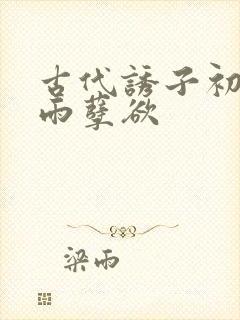 古代誘子初
雨孽欲
梁雨